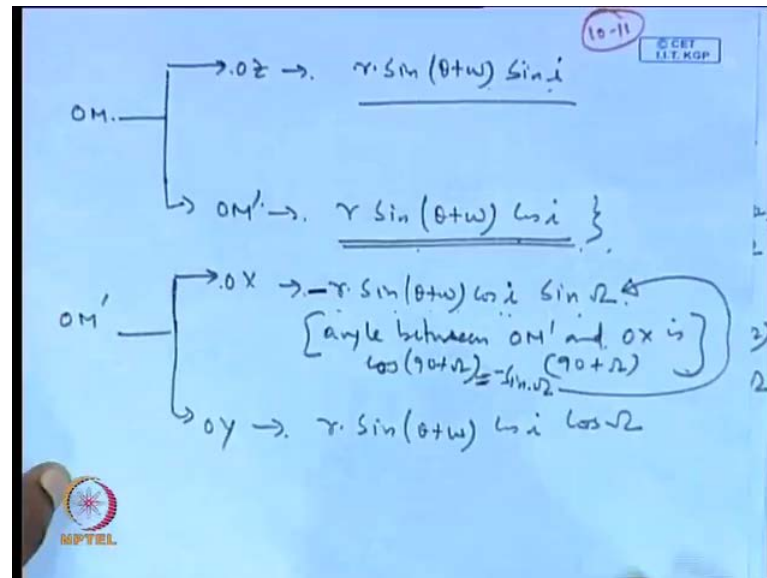 10-11
© CET
I.I.T. KGP
→.OZ →. r. Sin (θ+ω) Sin i
OM.
↳ OM'. →. r Sin (θ+ω) Cos i }
→.OX → -r. Sin(θ+ω) Cos i Sin Ω.
OM'
[angle between OM' and OX is
(90+Ω)]
cos(90+Ω) = -Sin.Ω
↳ OY →. r. Sin(θ+ω) Cos i Cos Ω
NPTEL